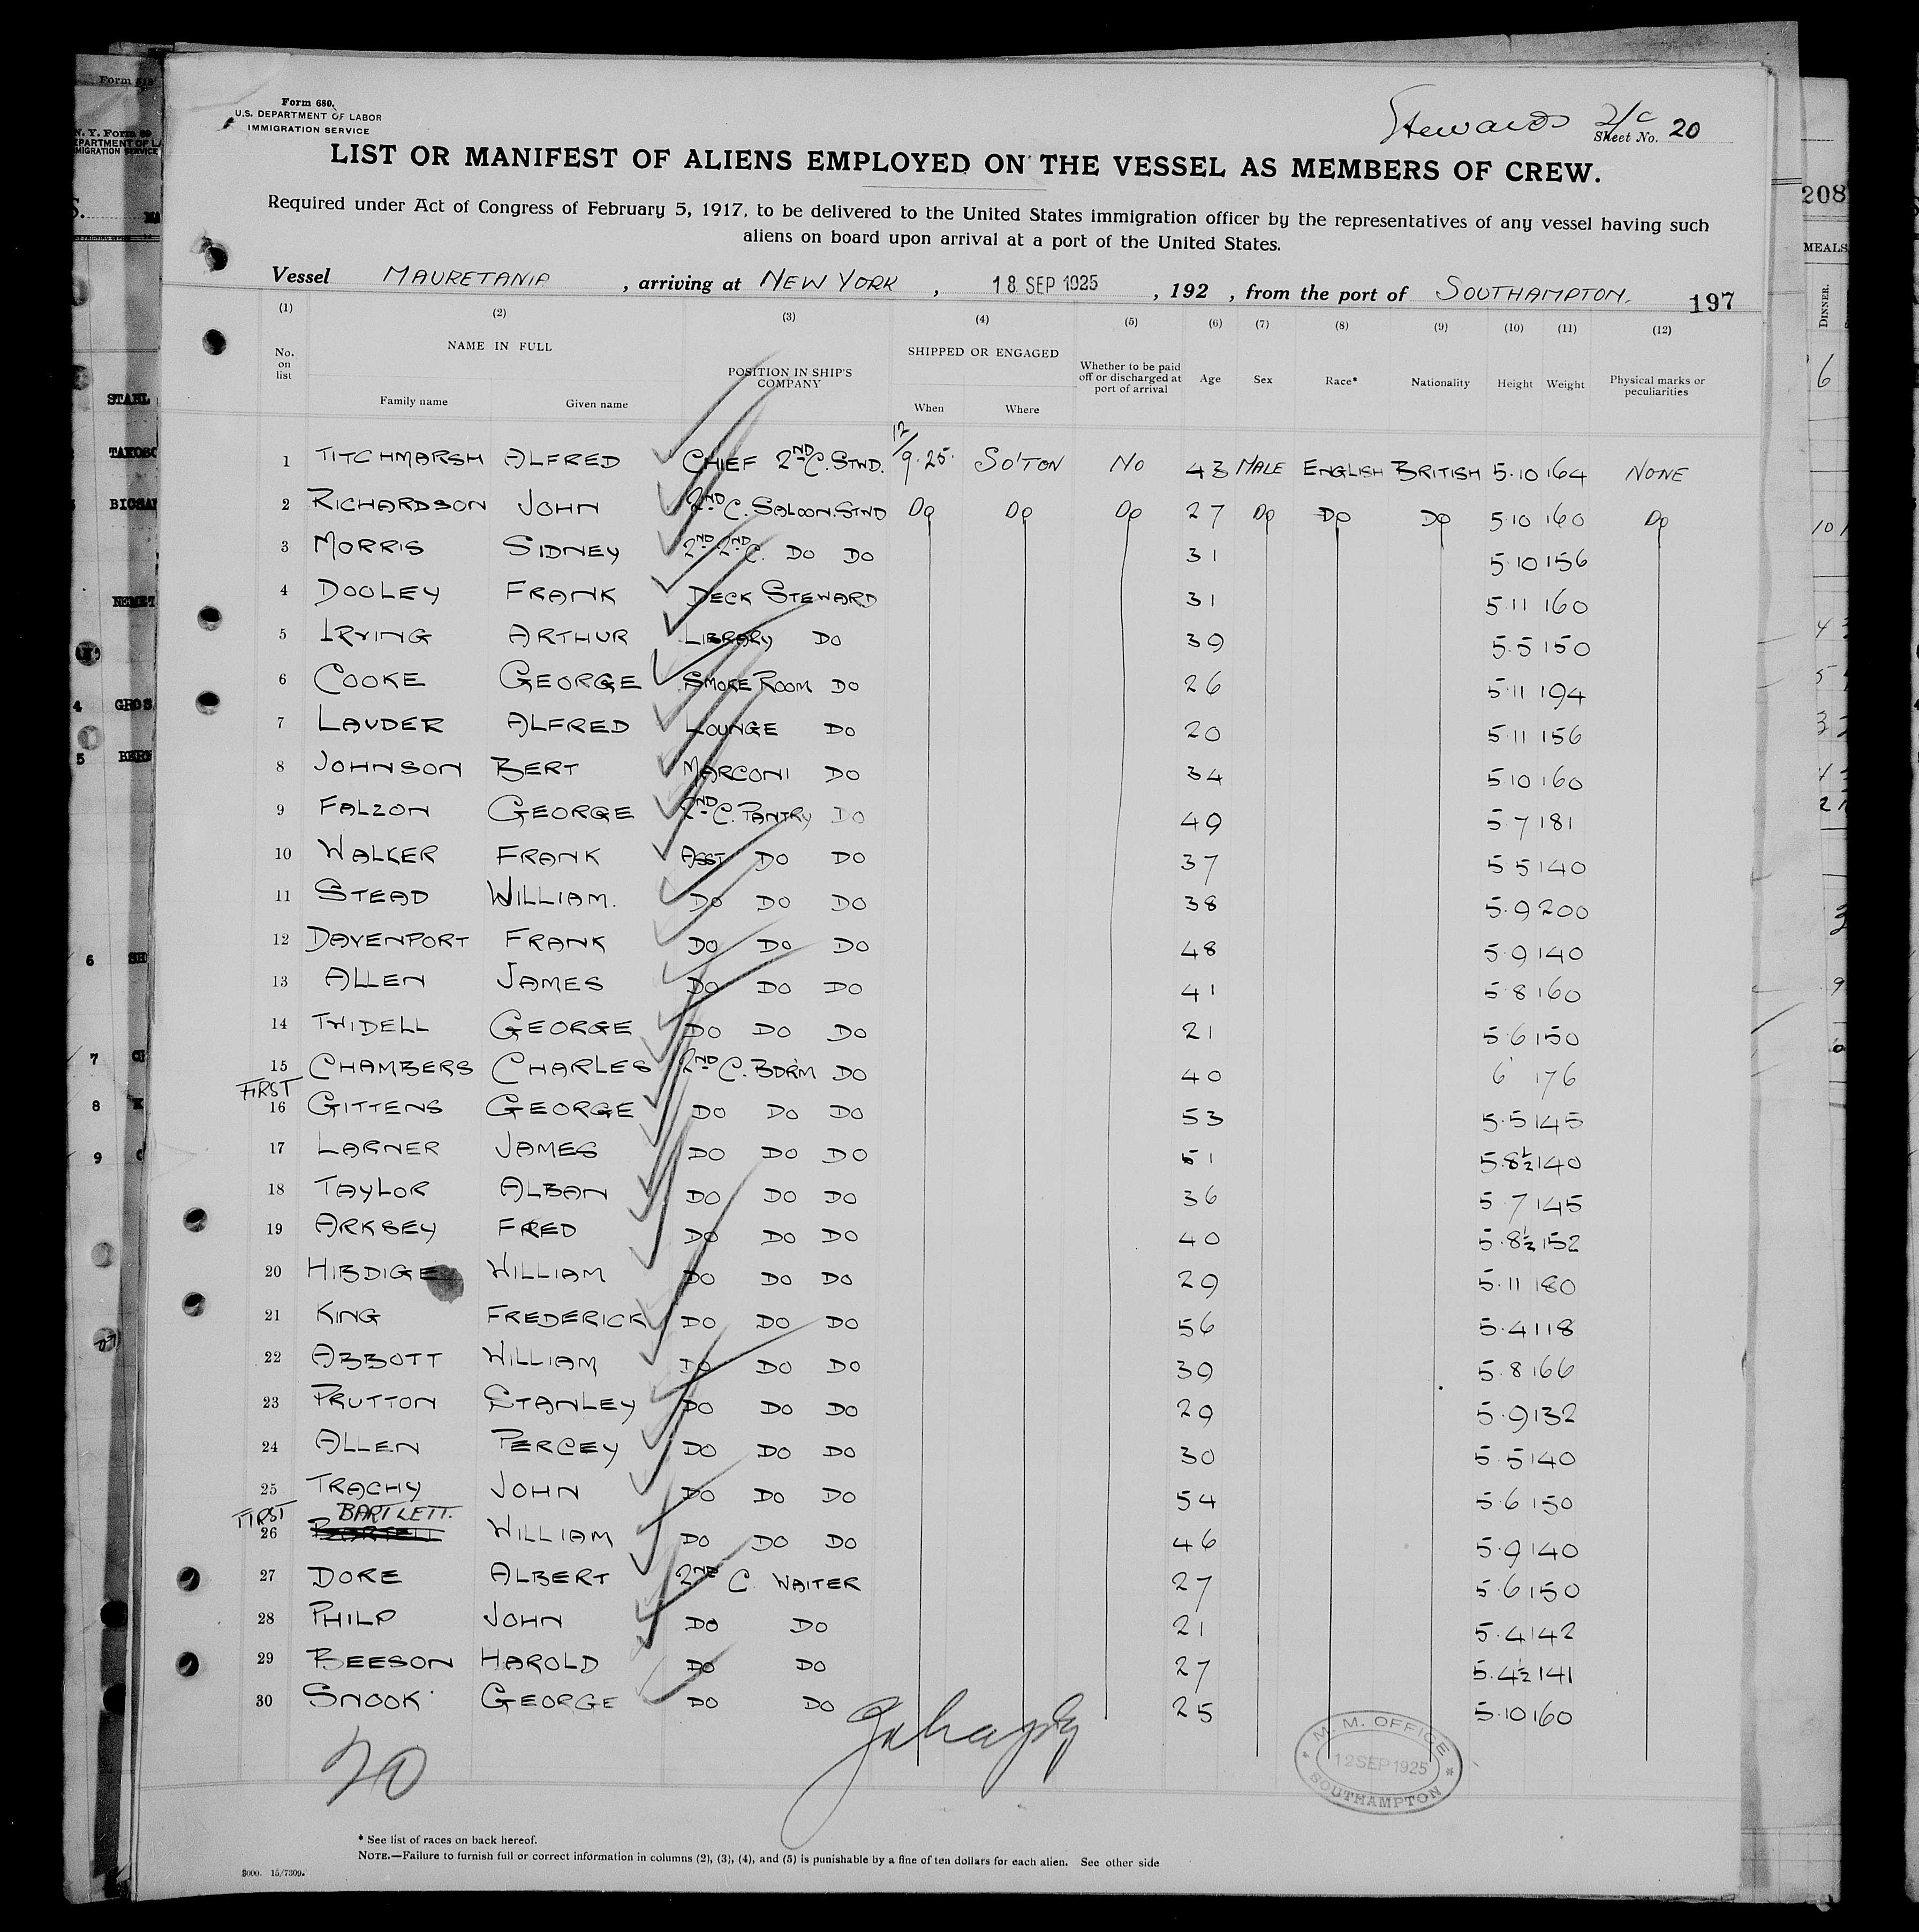 Form 680.
U.S. DEPARTMENT OF LABOR
IMMIGRATION SERVICE
Stewards 2/C
Sheet No. 20
LIST OR MANIFEST OF ALIENS EMPLOYED ON THE VESSEL AS MEMBERS OF CREW.
Required under Act of Congress of February 5, 1917, to be delivered to the United States immigration officer by the representatives of any vessel having such
aliens on board upon arrival at a port of the United States.
Vessel MAURETANIA, arriving at NEW YORK, 18 SEP 1925, 192 , from the port of SOUTHAMPTON. 197
(1) (2) (3) (4) (5) (6) (7) (8) (9) (10) (11) (12)
No. on list NAME IN FULL Family name Given name POSITION IN SHIP'S COMPANY SHIPPED OR ENGAGED When Where Whether to be paid off or discharged at port of arrival Age Sex Race* Nationality Height Weight Physical marks or peculiarities
1 TITCHMARSH ALFRED CHIEF 2ND C. STWD. 12/9.25. SO'TON NO 43 MALE ENGLISH BRITISH 5.10 164 NONE
2 RICHARDSON JOHN 2ND C. SALOON. STWD DO DO DO 27 DO DO DO 5.10 160 DO
3 MORRIS SIDNEY 2ND 2ND C. DO DO 31 5.10 156
4 DOOLEY FRANK DECK STEWARD 31 5.11 160
5 IRVING ARTHUR LIBRARY DO 39 5.5 150
6 COOKE GEORGE SMOKE ROOM DO 26 5.11 194
7 LAUDER ALFRED LOUNGE DO 20 5.11 156
8 JOHNSON BERT MARCONI DO 34 5.10 160
9 FALZON GEORGE 2ND C. PANTRY DO 49 5.7 181
10 WALKER FRANK ASST DO DO 37 5.5 140
11 STEAD WILLIAM. DO DO DO 38 5.9 200
12 DAVENPORT FRANK DO DO DO 48 5.9 140
13 ALLEN JAMES DO DO DO 41 5.8 160
14 TWIDELL GEORGE DO DO DO 21 5.6 150
15 CHAMBERS CHARLES 2ND C. BDRM DO 40 6 176
FIRST
16 GITTENS GEORGE DO DO DO 53 5.5 145
17 LARNER JAMES DO DO DO 51 5.8½ 140
18 TAYLOR ALBAN DO DO DO 36 5.7 145
19 ARKSEY FRED DO DO DO 40 5.8½ 152
20 HIBDIGE WILLIAM DO DO DO 29 5.11 180
21 KING FREDERICK DO DO DO 56 5.4 118
22 ABBOTT WILLIAM DO DO DO 39 5.8 166
23 PRUTTON STANLEY DO DO DO 29 5.9 132
24 ALLEN PERCEY DO DO DO 30 5.5 140
25 TRACHY JOHN DO DO DO 54 5.6 150
FIRST BARTLETT.
26 WILLIAM DO DO DO 46 5.9 140
27 DORE ALBERT 2ND C. WAITER 27 5.6 150
28 PHILP JOHN DO DO 21 5.4 142
29 BEESON HAROLD DO DO 27 5.4½ 141
30 SNOOK GEORGE DO DO 25 5.10 160
20
M. M. OFFICE
12 SEP 1925
SOUTHAMPTON
* See list of races on back hereof.
NOTE.—Failure to furnish full or correct information in columns (2), (3), (4), and (5) is punishable by a fine of ten dollars for each alien. See other side
3000. 15/7309.
Form 
208
MEALS
DINNER.
STAHL
GROS